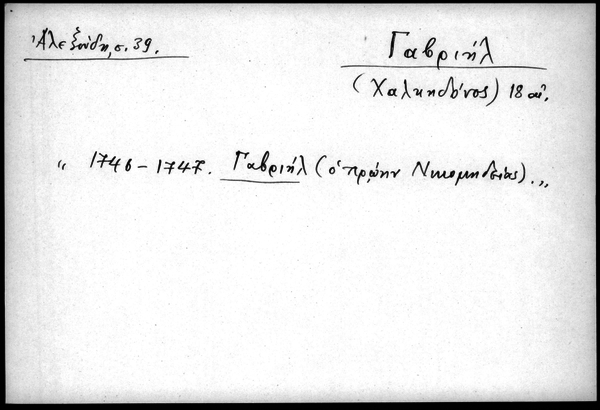 Ἀλεξούδη, σ. 39.
Γαβριήλ
(Χαλκηδόνος) 18 αἰ.
" 1746 - 1747. Γαβριήλ (ὁ πρώην Νικομηδείας). "